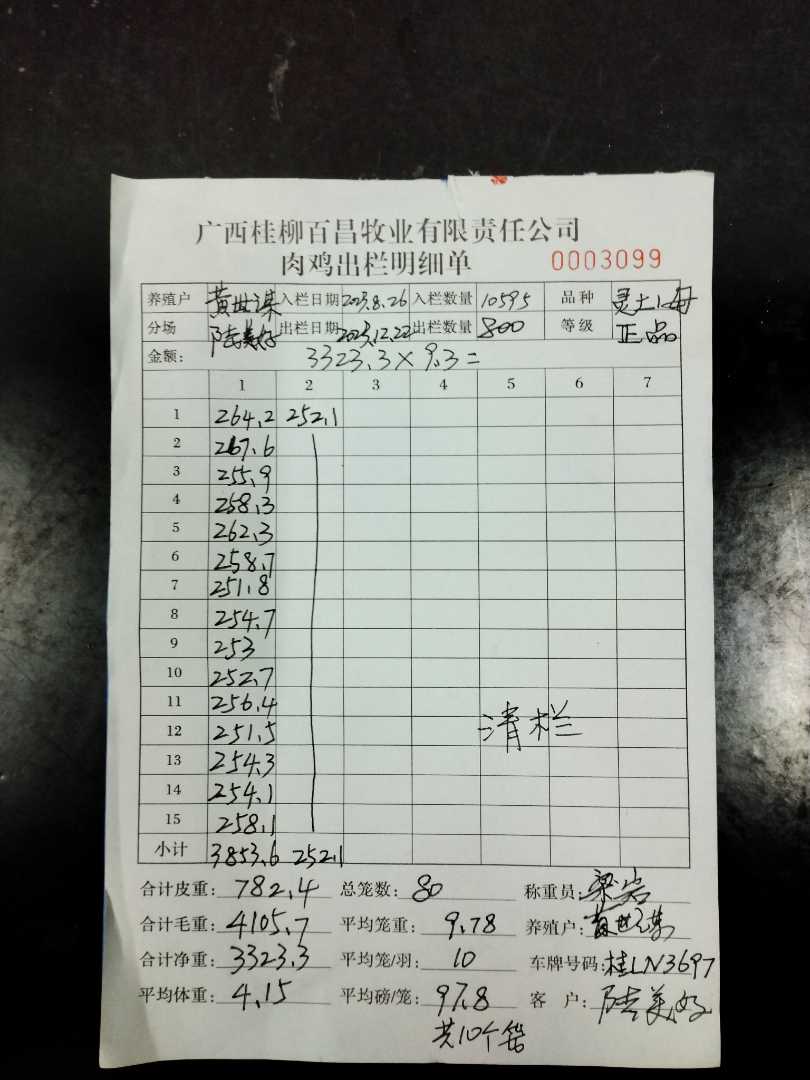 广西桂柳百昌牧业有限责任公司
肉鸡出栏明细单 0003099
养殖户 黄世谋 入栏日期 2023.8.26 入栏数量 10595 品种 灵土1号
分场 陆美好 出栏日期 2023.12.22 出栏数量 800 等级 正品
金额: 3323.3×9.3=
1 2 3 4 5 6 7
1 264.2 252.1
2 267.6
3 255.9
4 258.3
5 262.3
6 258.7
7 251.8
8 254.7
9 253
10 252.7
11 256.4
12 251.5 清栏
13 254.3
14 254.1
15 258.1
小计 3853.6 252.1
合计皮重: 782.4 总笼数: 80 称重员: 梁岩
合计毛重: 4105.7 平均笼重: 9.78 养殖户: 黄世谋
合计净重: 3323.3 平均笼/羽: 10 车牌号码: 桂LN3697
平均体重: 4.15 平均磅/笼: 97.8 客 户: 陆美好
共10个